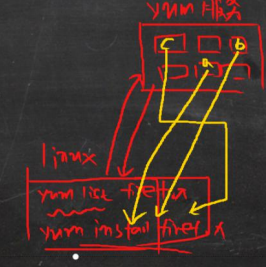 yum 服务
C b
a
linux
yum list firefox
yum install firefox